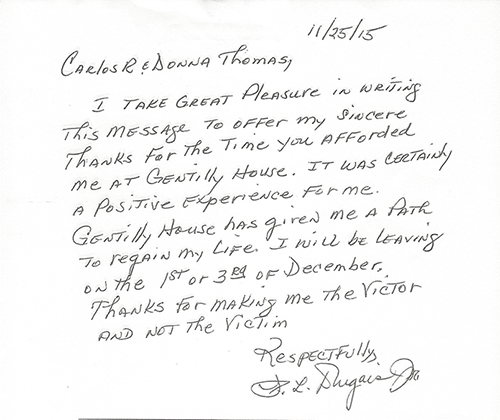 11/25/15
Carlos R & Donna Thomas,
I take great pleasure in writing
this message to offer my sincere
thanks for the time you afforded
me at Gentilly House. It was certainly
a positive experience for me.
Gentilly House has given me a path
to regain my life. I will be leaving
on the 1st or 3rd of December.
Thanks for making me the victor
and not the victim
Respectfully,
L. Jr.